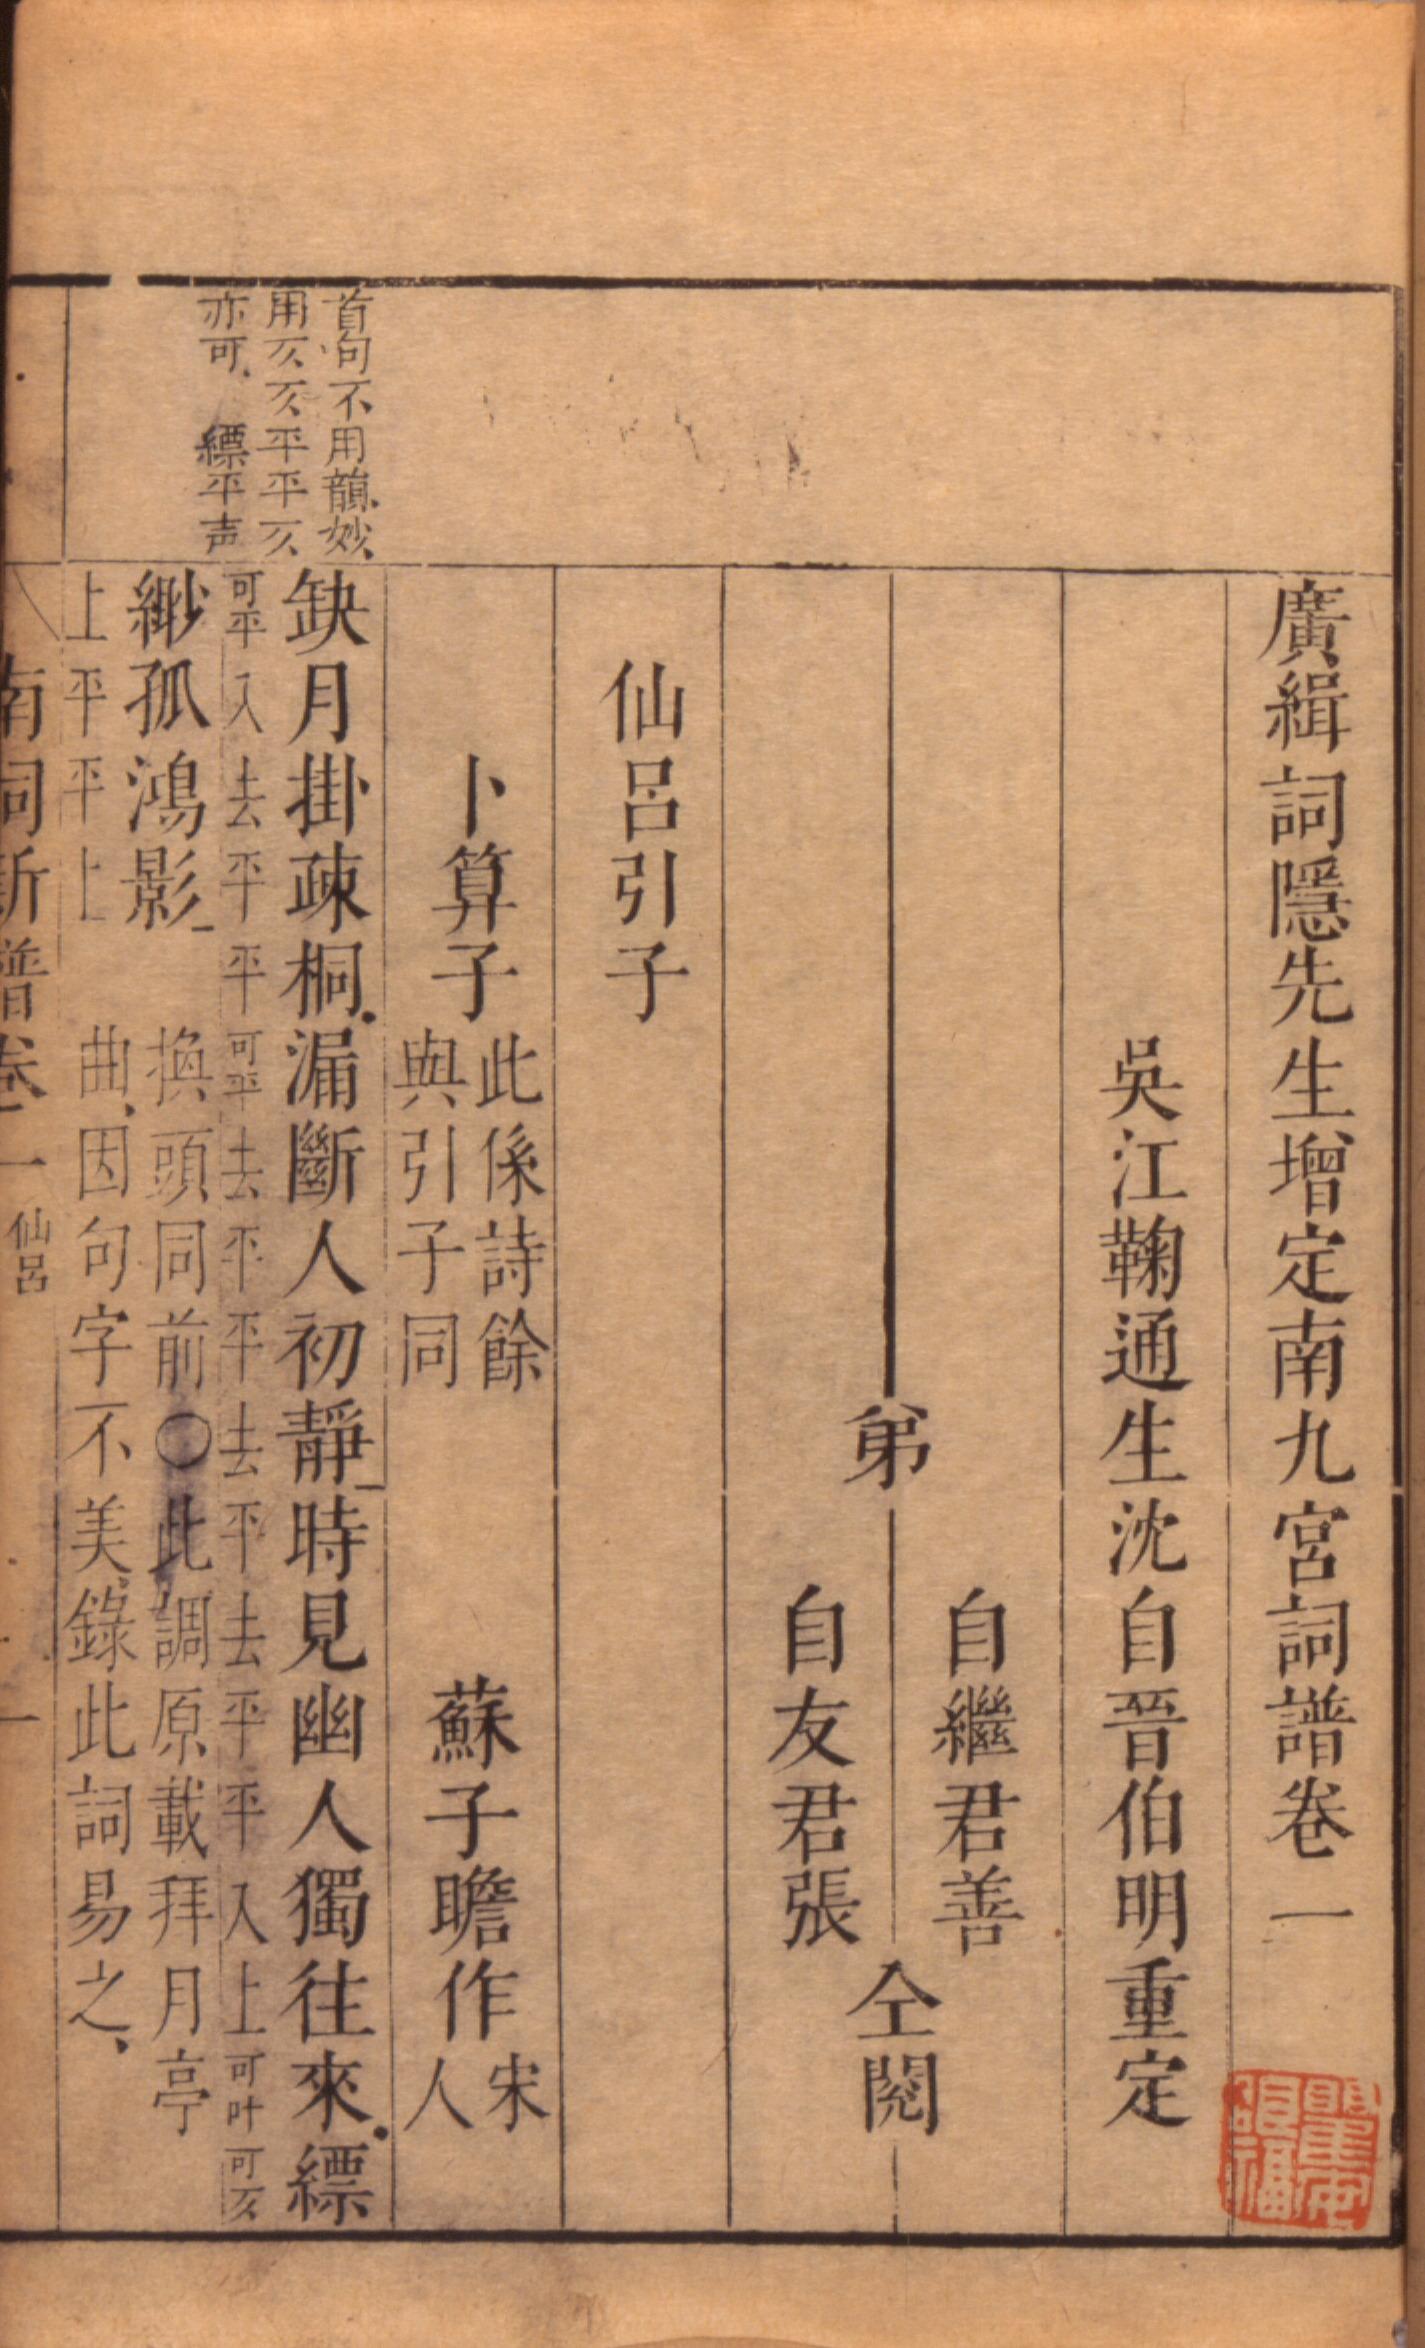 廣緝詞隱先生增定南九宮詞譜卷一
吳江鞠通生沈自晉伯明重定
弟
自繼君善
自友君張
仝閱
仙呂引子
卜算子
此係詩餘
與引子同
蘇子瞻作
宋
人
首句不用韻妙
用仄仄平平仄
亦可　縹平声
缺月掛疎桐漏斷人初靜時見幽人獨往來縹
可平入去平平可平去平平去平去平平入上可叶可仄
緲孤鴻影
上平平上
換頭同前〇此調原載拜月亭
曲因句字不美錄此詞易之
南詞新譜卷一
仙呂
一